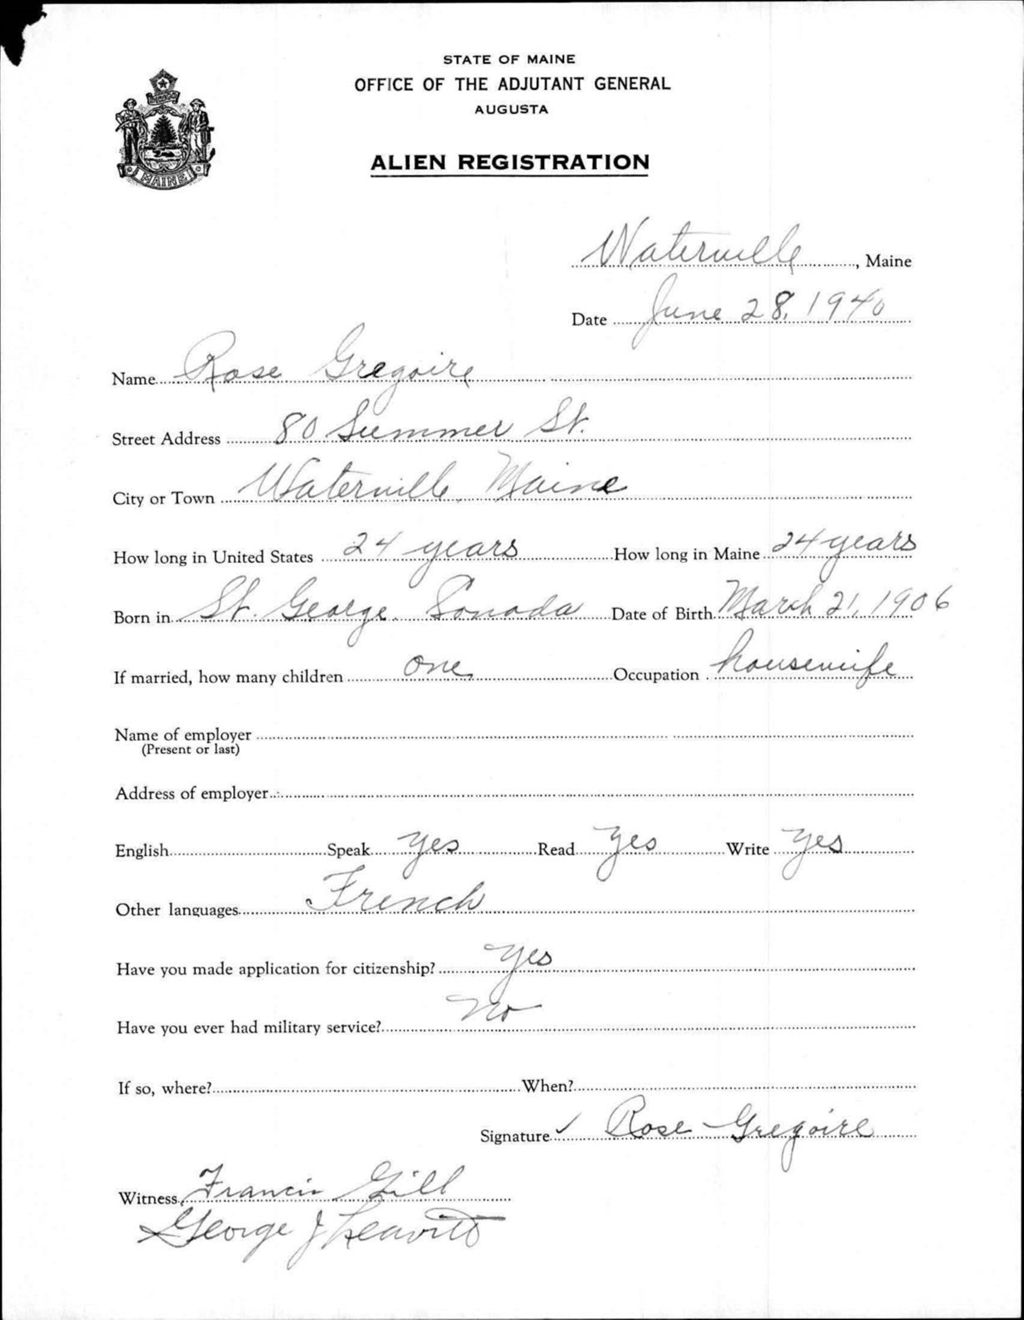 STATE OF MAINE
OFFICE OF THE ADJUTANT GENERAL
AUGUSTA
ALIEN REGISTRATION
MAINE
Waterville, Maine
Date June 28, 1940
Name Rose Gregoire
Street Address 80 Summer St.
City or Town Waterville, Maine
How long in United States 24 years How long in Maine 24 years
Born in St. George Canada Date of Birth March 21, 1906
If married, how many children one Occupation housewife
Name of employer
(Present or last)
Address of employer
English Speak Yes Read Yes Write Yes
Other languages French
Have you made application for citizenship? Yes
Have you ever had military service? No
If so, where? When?
Signature ✓ Rose Gregoire
Witness Francis Gill
George J Leavitt